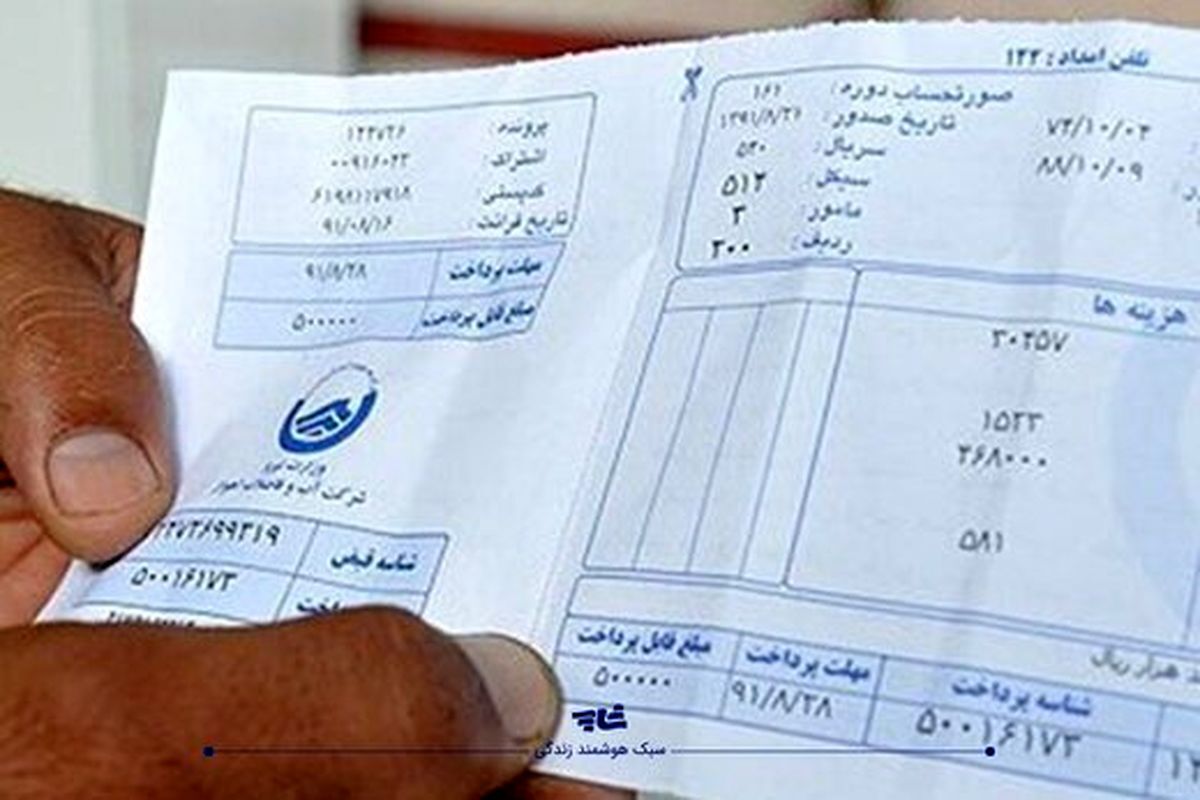 تلفن امداد : ۱۲۲
صورتحساب دوره: ۱۶۱
تاریخ صدور: ۱۳۹۱/۸/۲۱
سریال: ۵۳۰
سیکل: ۵۱۲
مامور: ۳
ردیف: ۳۰۰
۷۴/۱۰/۰۳
۸۸/۱۰/۰۹
هزینه ها
۳۰۲۵۷
۱۵۲۳
۴۶۸۰۰۰
۵۸۱
هزار ریال
مبلغ قابل پرداخت
مهلت پرداخت
شناسه پرداخت
۵۰۰۰۰۰
۹۱/۸/۲۸
۵۰۰۱۶۱۷۳
پرونده: ۱۲۳۷۲۶
اشتراک: ۰۰۹۱۶۰۲۳
کدپستی: ۶۱۹۸۱۱۷۹۱۸
تاریخ قرائت: ۹۱/۰۸/۱۶
مهلت پرداخت ۹۱/۸/۲۸
مبلغ قابل پرداخت ۵۰۰۰۰۰
وزارت نیرو
شرکت آب و فاضلاب اهواز
شناسه قبض
۵۰۰۱۶۱۷۳
شاپ
سبک هوشمند زندگی